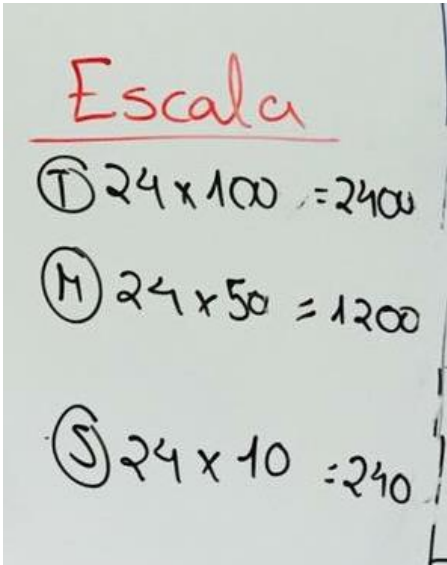 Escala
T 24 x 100 = 2400
M 24 x 50 = 1200
S 24 x 10 = 240